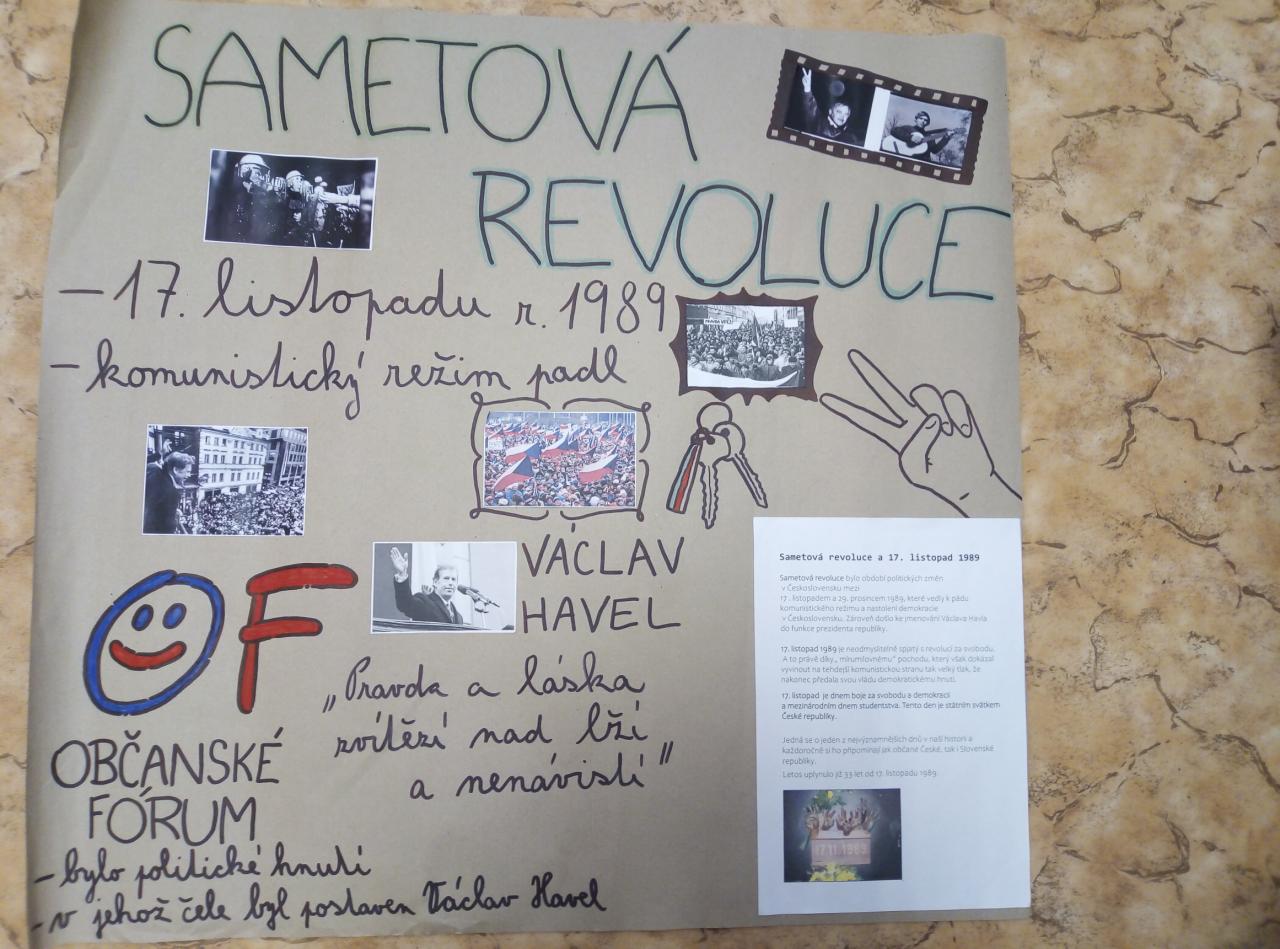 SAMETOVÁ
REVOLUCE
- 17. listopadu r. 1989
- komunistický režim padl
OF
VÁCLAV
HAVEL
„Pravda a láska
zvítězí nad lží
a nenávistí"
OBČANSKÉ
FÓRUM
- bylo politické hnutí
- v jehož čele byl postaven Václav Havel
Sametová revoluce a 17. listopad 1989
Sametová revoluce bylo období politických změn
v Československu mezi
17. listopadem a 29. prosincem 1989, které vedly k pádu
komunistického režimu a nastolení demokracie
v Československu. Zároveň došlo ke jmenování Václava Havla
do funkce prezidenta republiky.
17. listopad 1989 je neodmyslitelně spjatý s revolucí za svobodu.
A to právě díky „mírumilovnému" pochodu, který však dokázal
vyvinout na tehdejší komunistickou stranu tak velký tlak, že
nakonec předala svou vládu demokratickému hnutí.
17. listopad je dnem boje za svobodu a demokracii
a mezinárodním dnem studentstva. Tento den je státním svátkem
České republiky.
Jedná se o jeden z nejvýznamnějších dnů v naší historii a
každoročně si ho připomínají jak občané České, tak i Slovenské
republiky.
Letos uplynulo již 33 let od 17. listopadu 1989.
17.11.1989